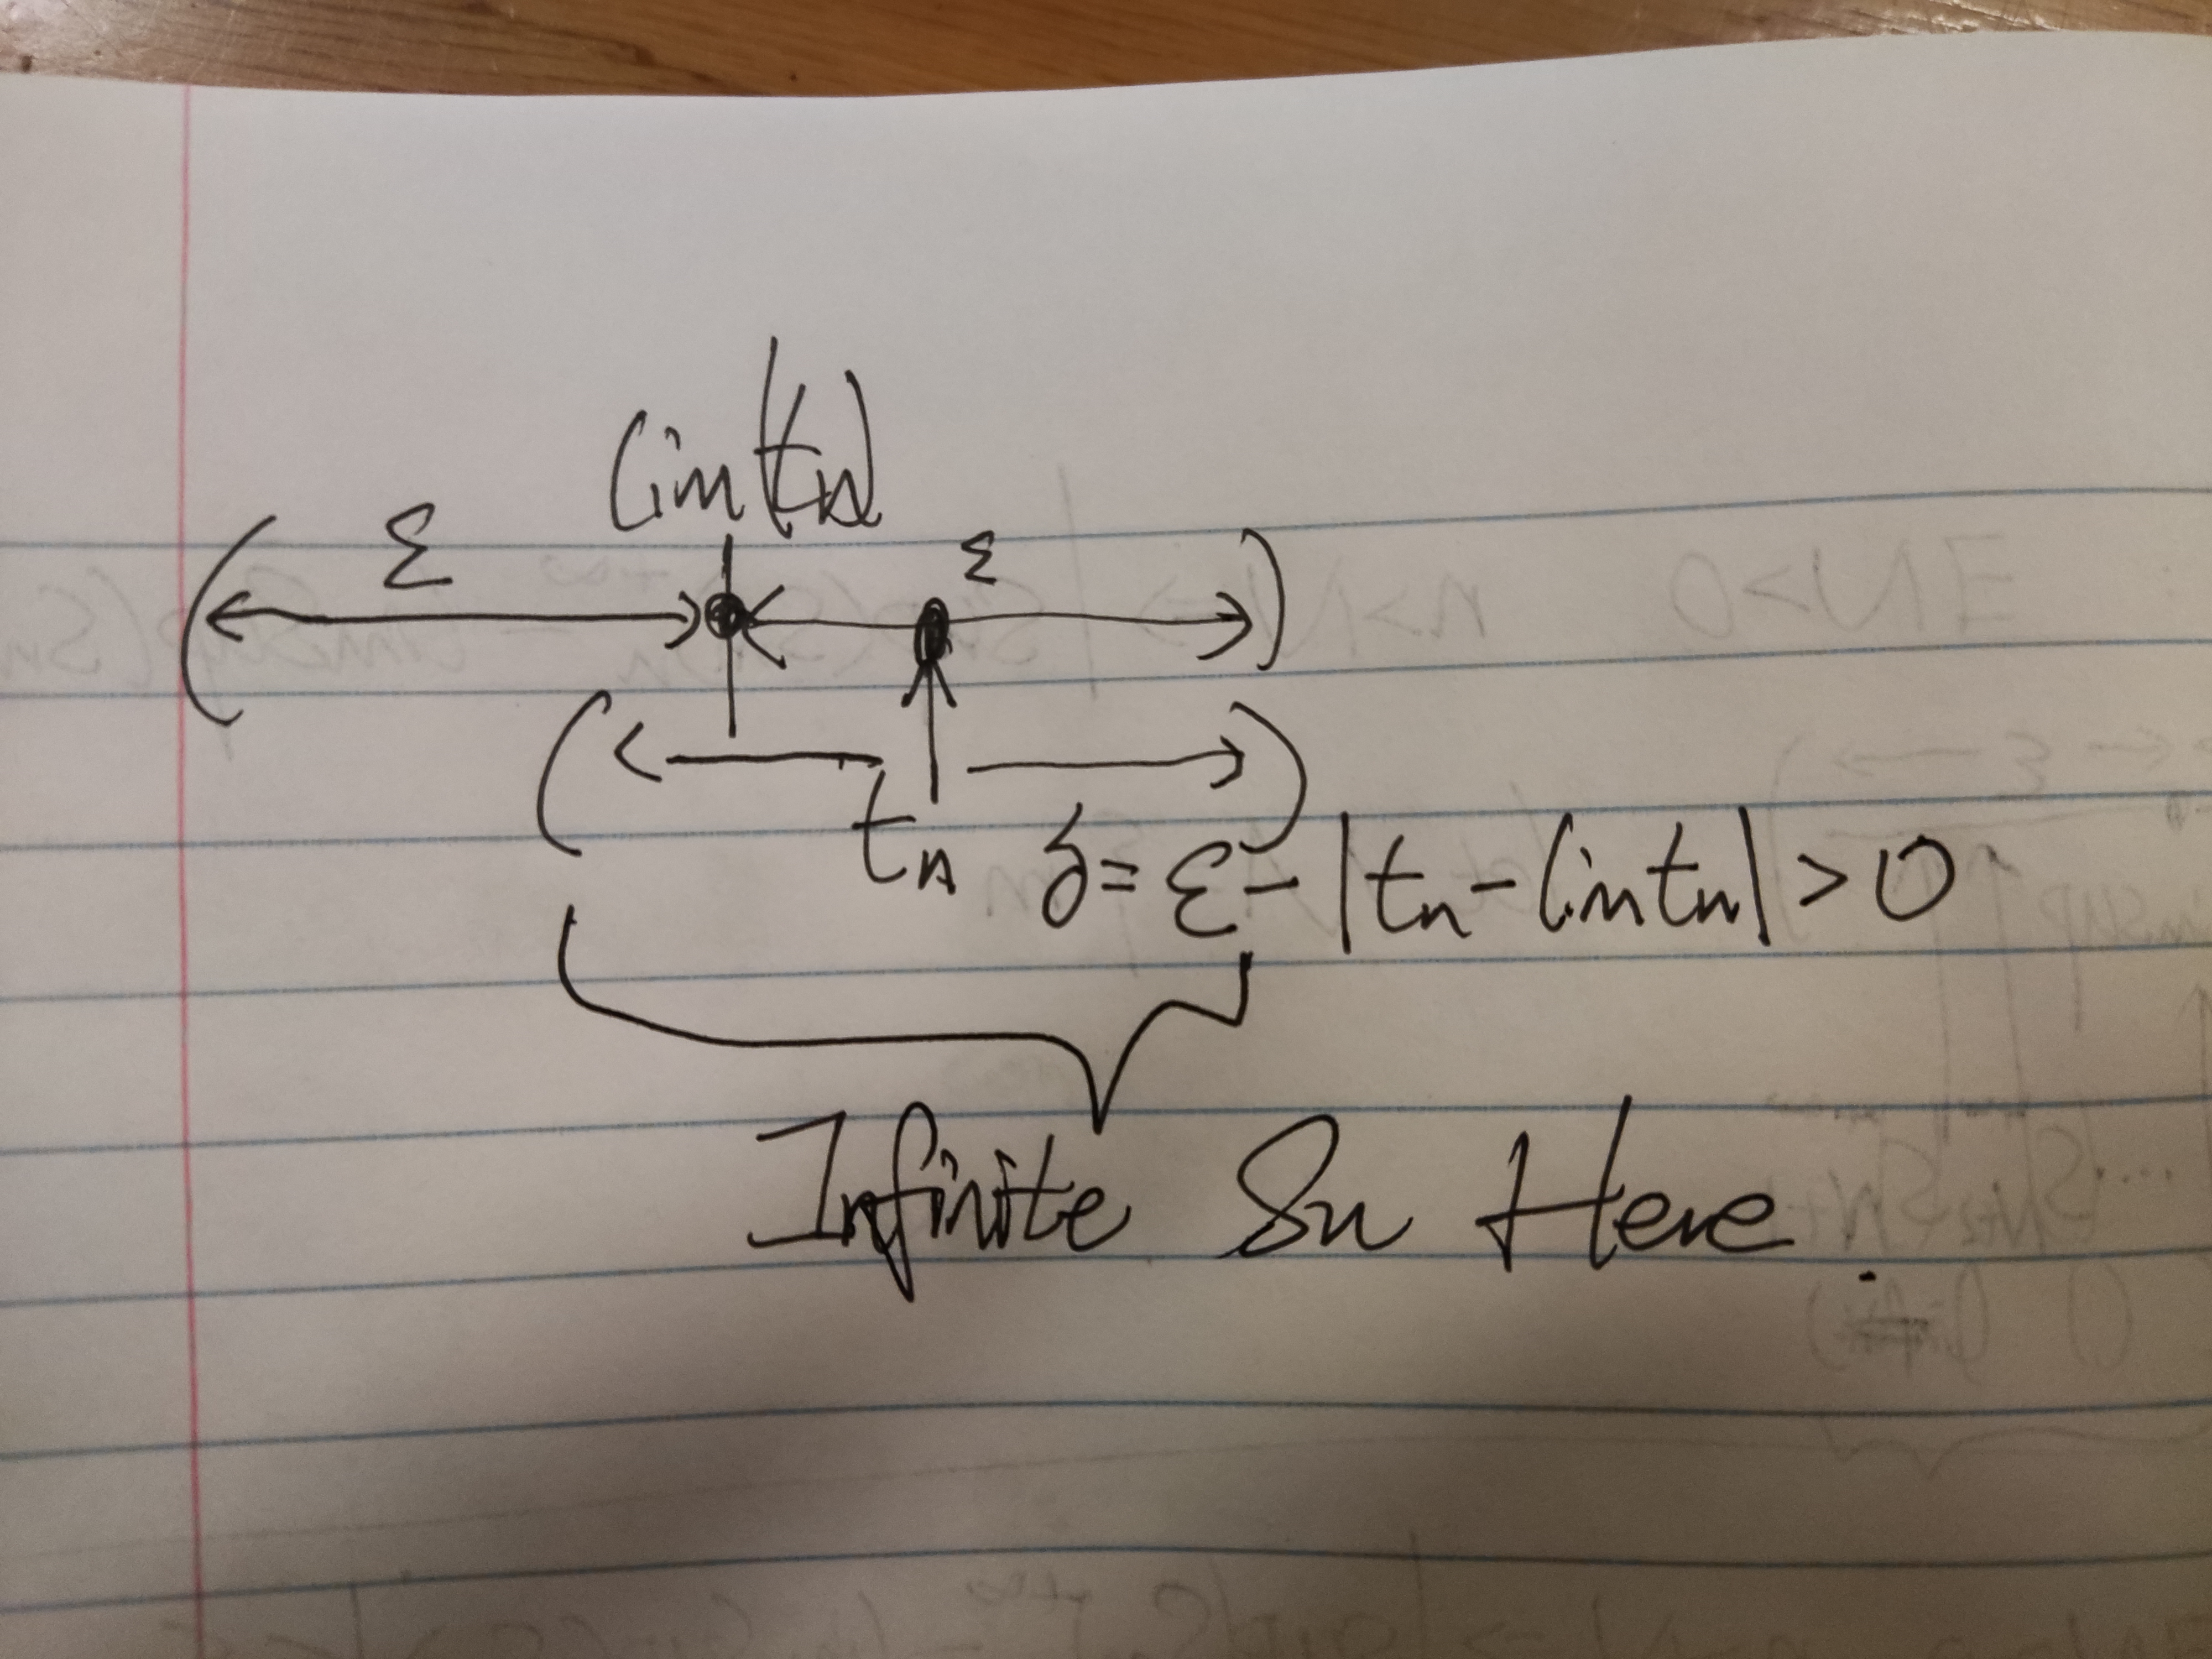 lim(tn)
ε ε
tn δ = ε - |tn - lim tn| > 0
Infinite Sn Here.